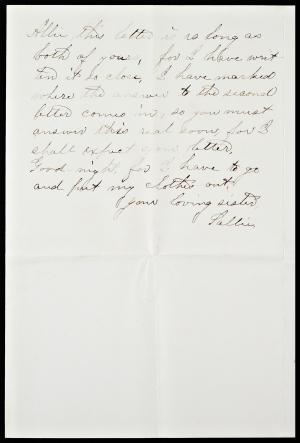 Allie, this letter is as long as
both of yours, for I have writ-
ten it so close, I have marked
where the answer to the second
letter comes in, so you must
answer this real soon, for I
shall expect your letter.
Good night, for I have to go
and put my clothes out.
your loving sister
Sallie